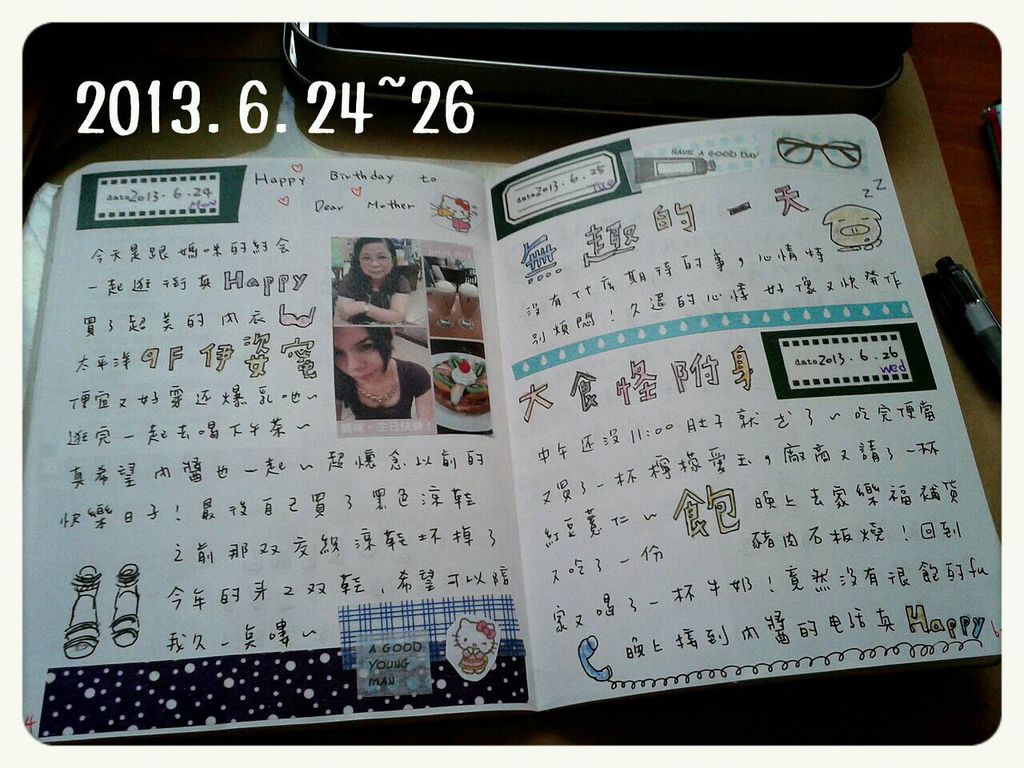 2013.6.24~26
date 2013.6.24
Mon
Happy Birthday to
Dear Mother
今天是跟媽咪的約会
一起逛街真Happy
買了超美的內衣
太平洋9F伊姿蜜
便宜又好穿还爆乳吔~
逛完一起去喝下午茶~
真希望內醬也一起~超懷念以前的
快樂日子!最後自己買了黑色涼鞋
之前那双夜続涼鞋坏掉了
今年的第2双鞋、希望可以陪
我久一臭嘍~
媽咪~生日快樂!
A GOOD
YOUNG
MAN
4
date 2013.6.25
Tue
HAVE A GOOD DAY
無趣的一天
zZZ
沒有什庅期待的事,心情特
別煩悶!久違的心悸好像又快発作
大食怪附身
date 2013.6.26
wed
中午还沒11:00肚子就 了~吃完便當
又買了一杯檸檬愛玉,廠商又請了一杯
紅豆薏仁~飽 晚上去家樂福補貨
又吃了一份 豬肉石板燒!回到
家又喝了一杯牛奶!竟然沒有很飽的fu
晚上接到內醬的电话真Happy